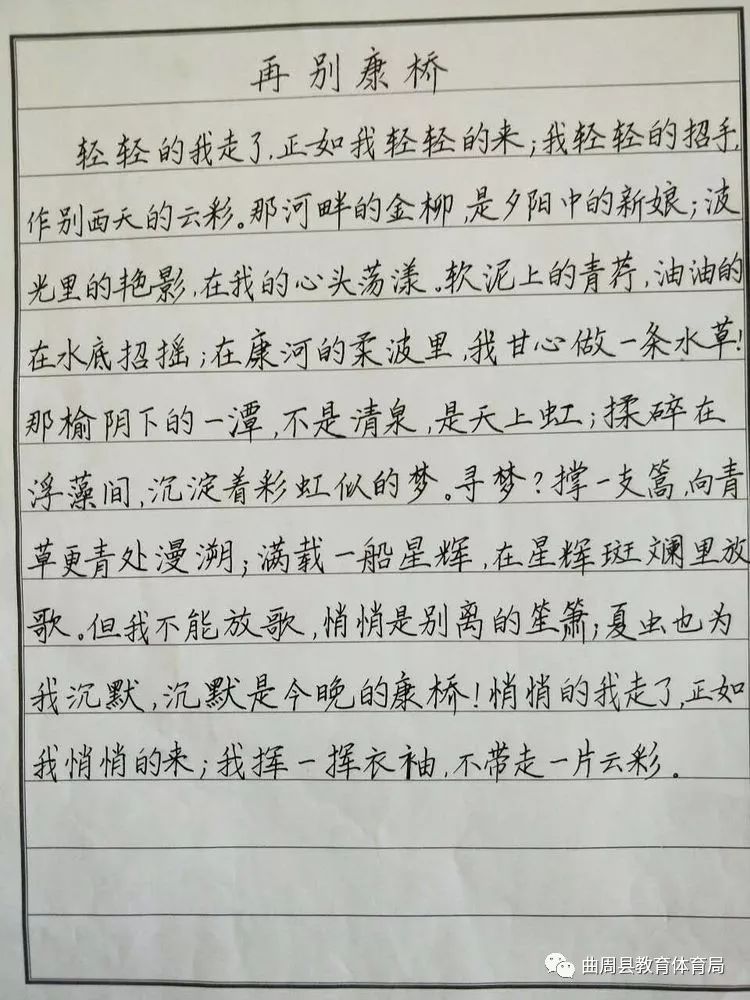 再别康桥
轻轻的我走了,正如我轻轻的来;我轻轻的招手,
作别西天的云彩。那河畔的金柳,是夕阳中的新娘;波
光里的艳影,在我的心头荡漾。软泥上的青荇,油油的
在水底招摇;在康河的柔波里,我甘心做一条水草!
那榆阴下的一潭,不是清泉,是天上虹;揉碎在
浮藻间,沉淀着彩虹似的梦。寻梦?撑一支篙,向青
草更青处漫溯;满载一船星辉,在星辉斑斓里放
歌。但我不能放歌,悄悄是别离的笙箫;夏虫也为
我沉默,沉默是今晚的康桥!悄悄的我走了,正如
我悄悄的来;我挥一挥衣袖,不带走一片云彩。
曲周县教育体育局